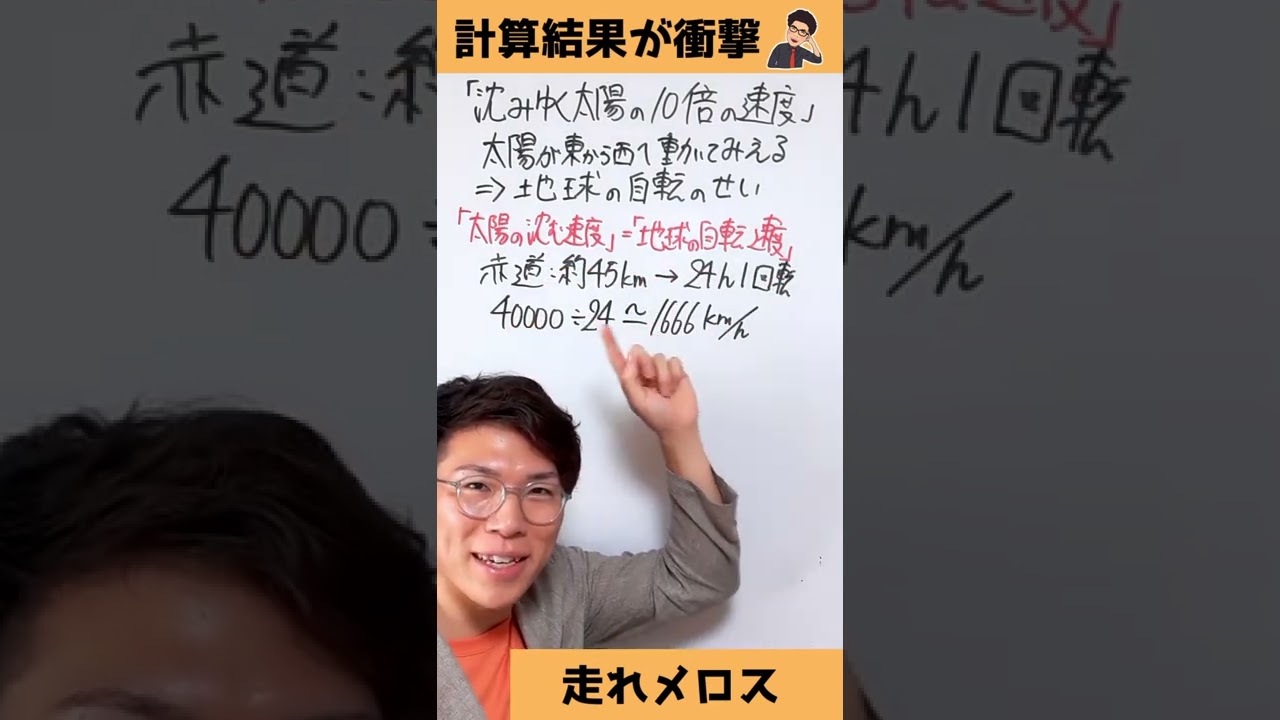 計算結果が衝撃
「沈みゆく太陽の10倍の速度」
太陽が東から西へ動いてみえる
⇒地球の自転のせい
「太陽の沈む速度」=「地球の自転速度」
赤道:約4万km→24h1回転
40000÷24≃1666km/h
走れメロス